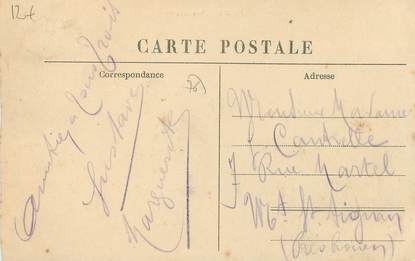 12+
CARTE POSTALE
Correspondance
Adresse
Amitiés à tous trois
Gustave
Marguerite
Monsieur Madame
Canville
7 Rue Martel
Mt St Aignan
(Près Rouen)